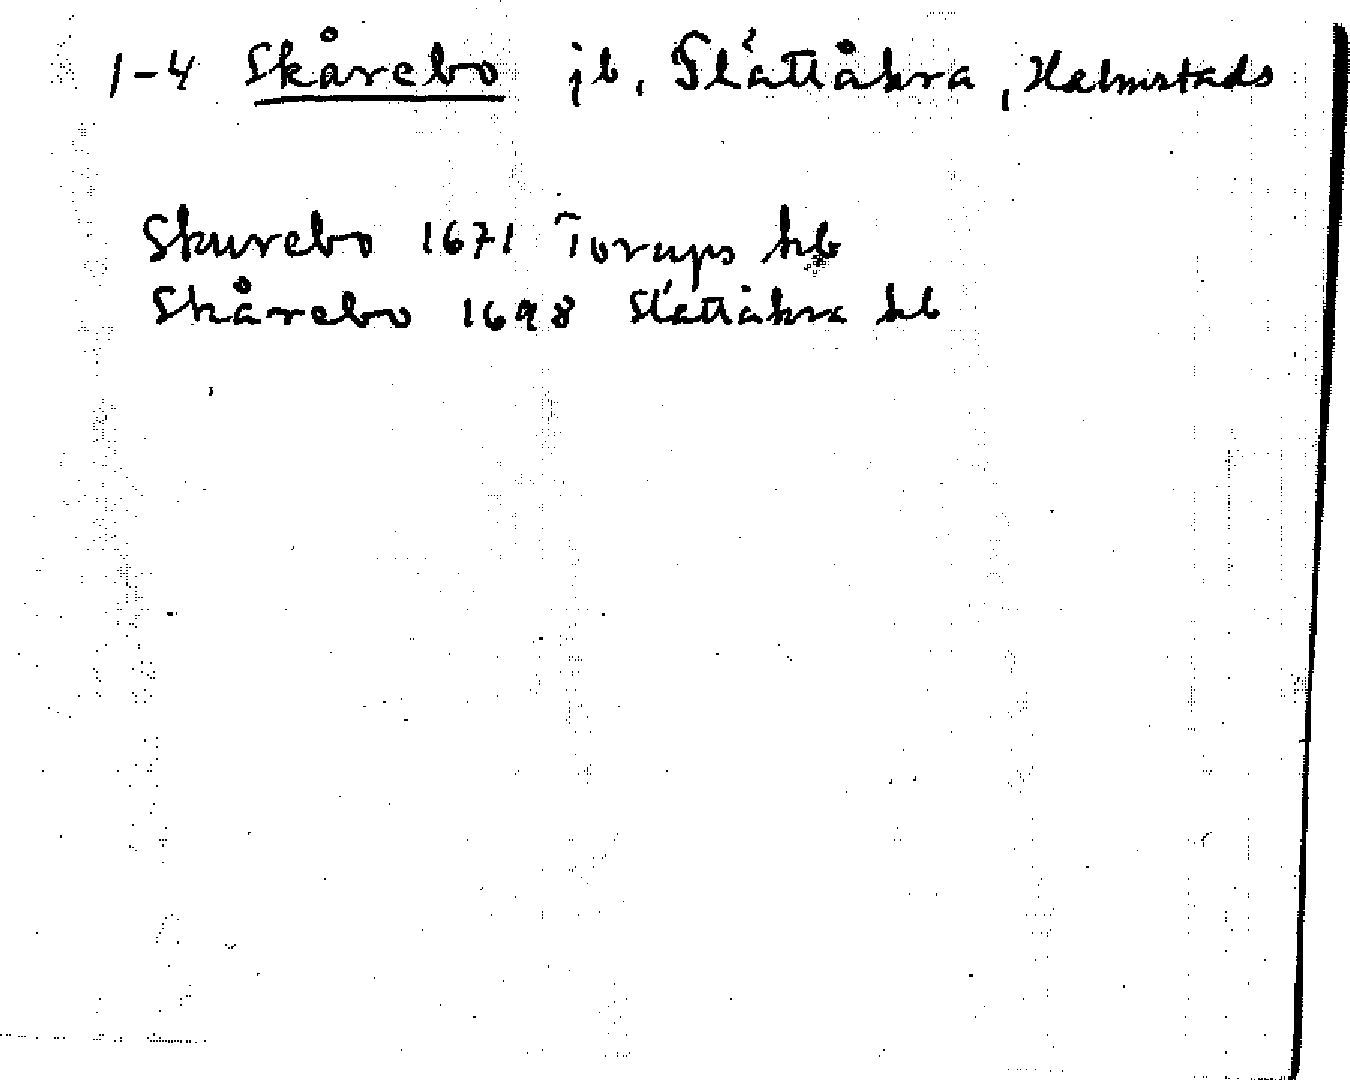 1-4 Skårebo jb, Slättåkra, Halmstads
Skurebo 1671 Torups kb
Skårebo 1698 Slättåkra kb